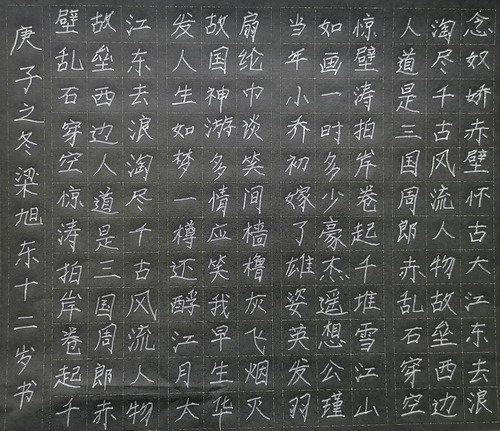 念奴娇赤壁怀古大江东去浪
淘尽千古风流人物故垒西边
人道是三国周郎赤乱石穿空
惊壁涛拍岸卷起千堆雪江山
如画一时多少豪杰遥想公瑾
当年小乔初嫁了雄姿英发羽
扇纶巾谈笑间樯橹灰飞烟灭
故国神游多情应笑我早生华
发人生如梦一樽还酹江月大
江东去浪淘尽千古风流人物
故垒西边人道是三国周郎赤
壁乱石穿空惊涛拍岸卷起千
庚子之冬梁旭东十二岁书